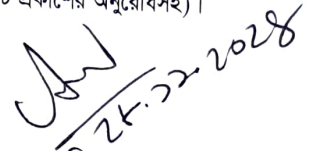 প্রকাশের অনুরোধসহ)।
২৮.১১.২০২৪